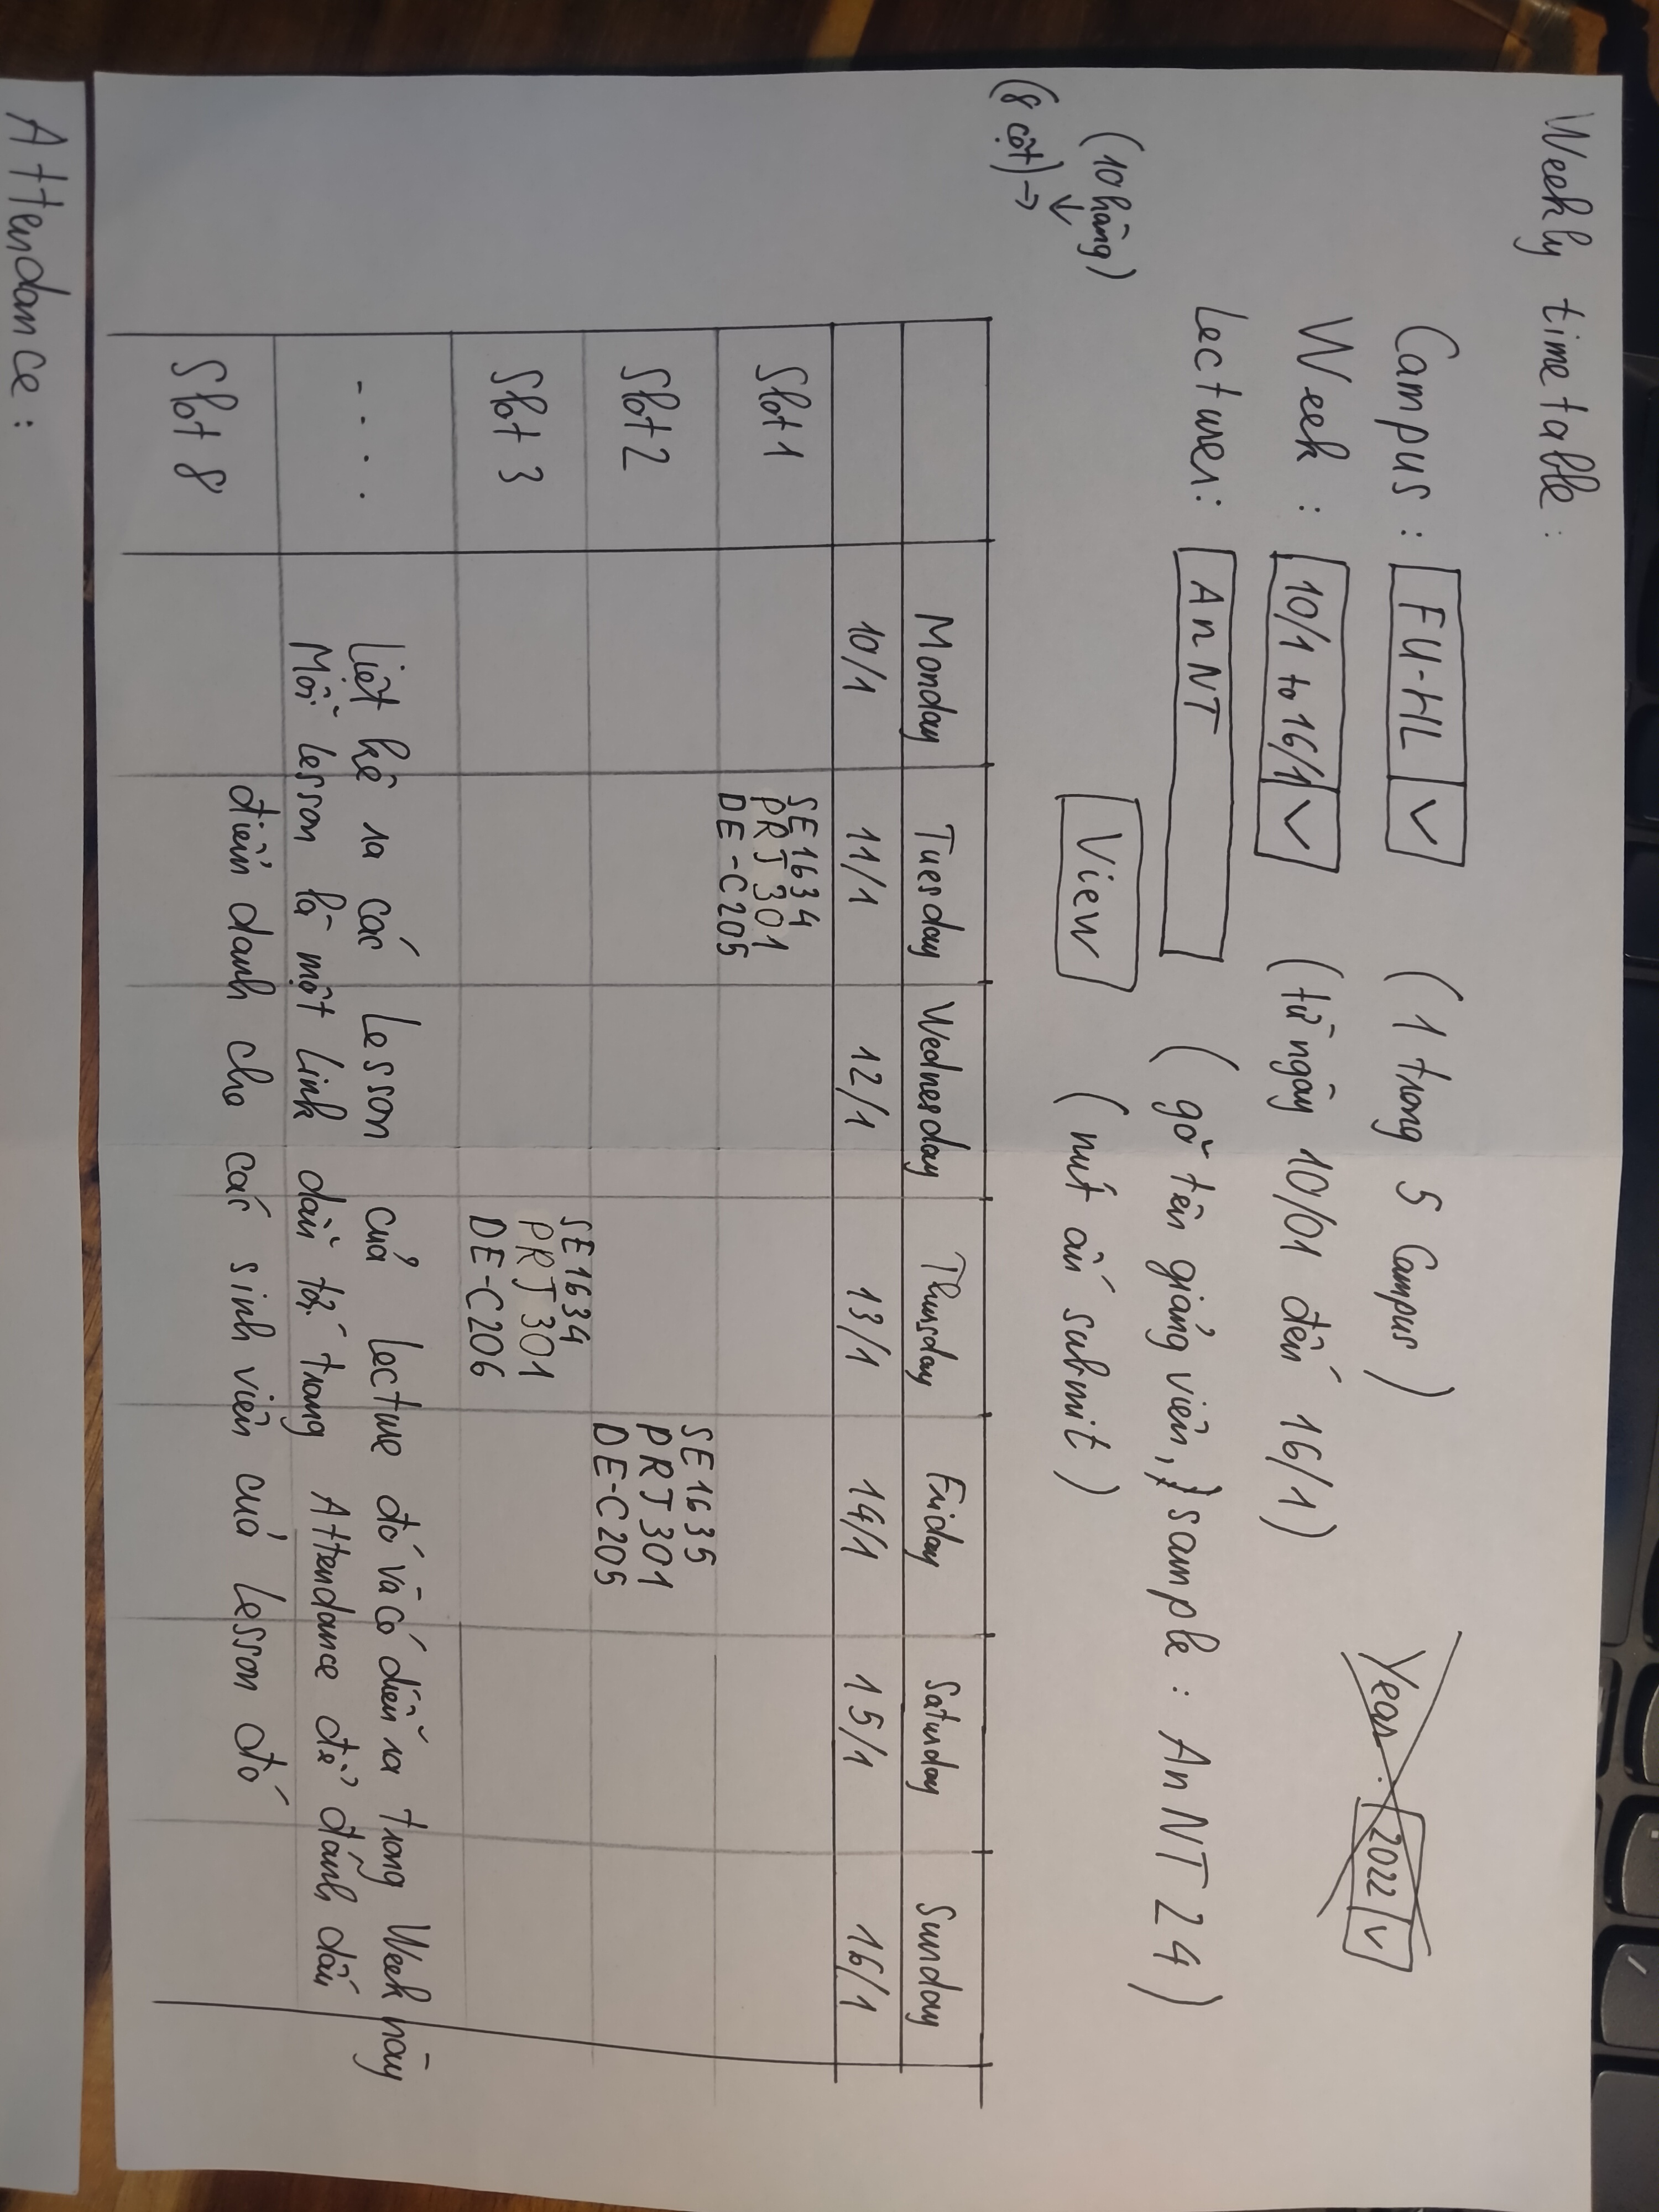 Weekly timetable:
Campus: FU-HL (1 trong 5 Campus) Year: 2022
Week: 10/1 to 16/1 (từ ngày 10/01 đến 16/1)
Lecturer: AnNT (gõ tên giảng viên, sample: AnNT24)
(10 hàng)
View (nút ấn submit)
(8 cột)→
Monday Tuesday Wednesday Thursday Friday Saturday Sunday
10/1 11/1 12/1 13/1 14/1 15/1 16/1
Slot 1
SE1634
PRJ301
DE-C205
Slot 2
SE1635
PRJ301
DE-C205
Slot 3
SE1634
PRJ301
DE-C206
.... Liệt kê ra các Lesson của Lecture đó và có diễn ra trong Week này
Mỗi Lesson là một Link dẫn tới trang Attendance để đánh dấu
điểm danh cho các sinh viên của Lesson đó
Slot 8
Attendance: